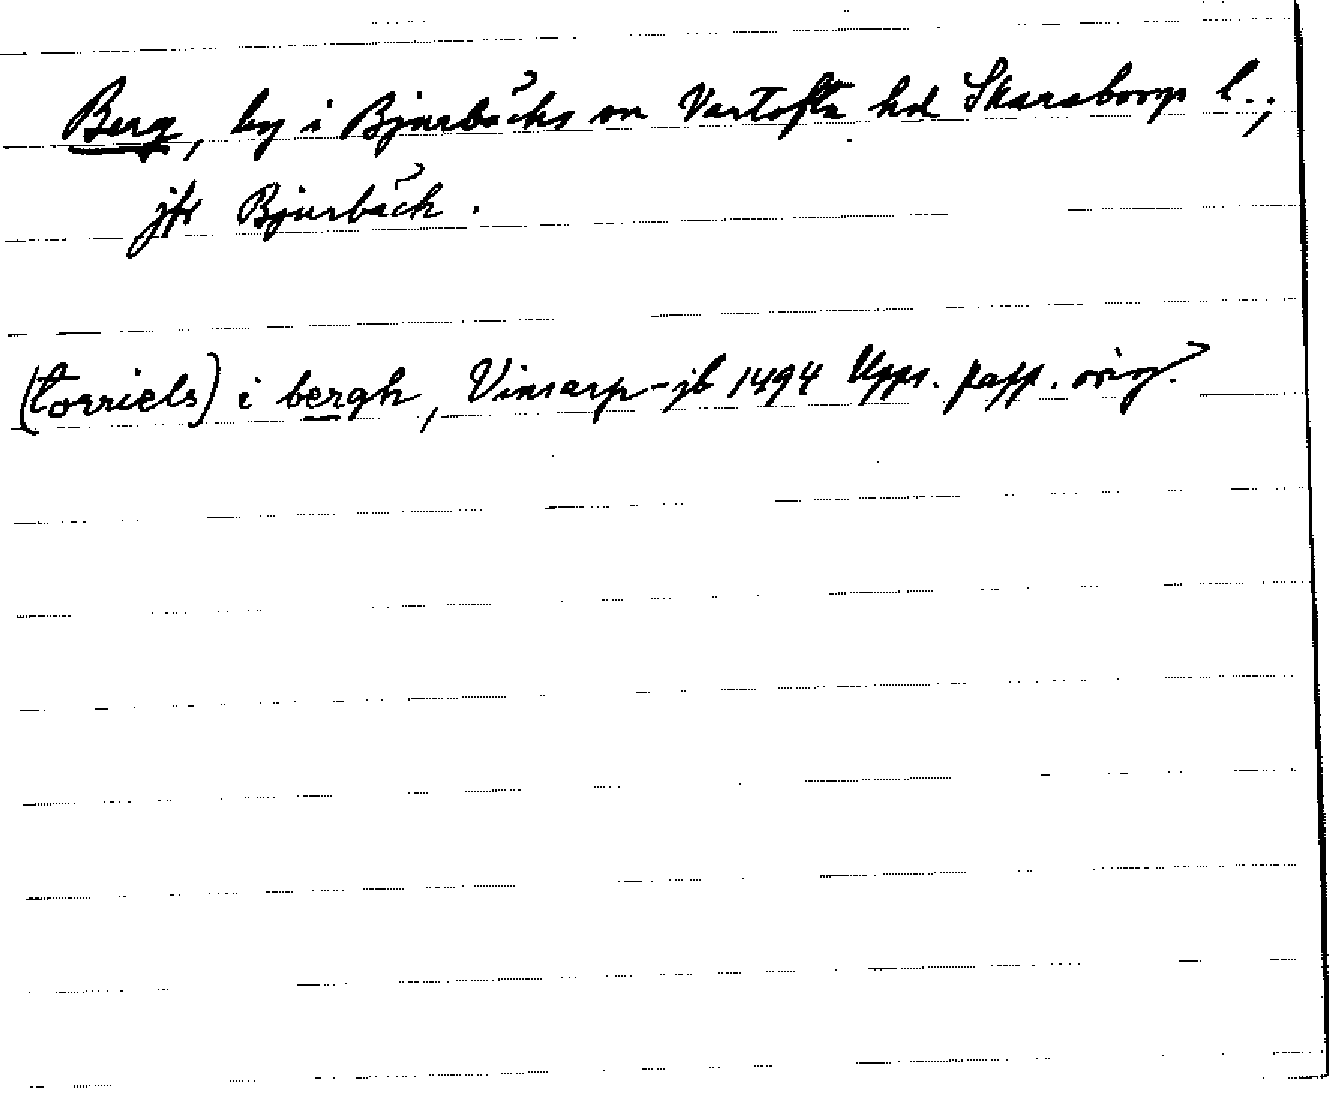 Berg, by i Bjurbäcks sn Vartofta hd Skaraborgs l.;
jfr Bjurbäck.
(torriels) i bergh, Vinsarp-jb 1494 Upps. papp. orig.